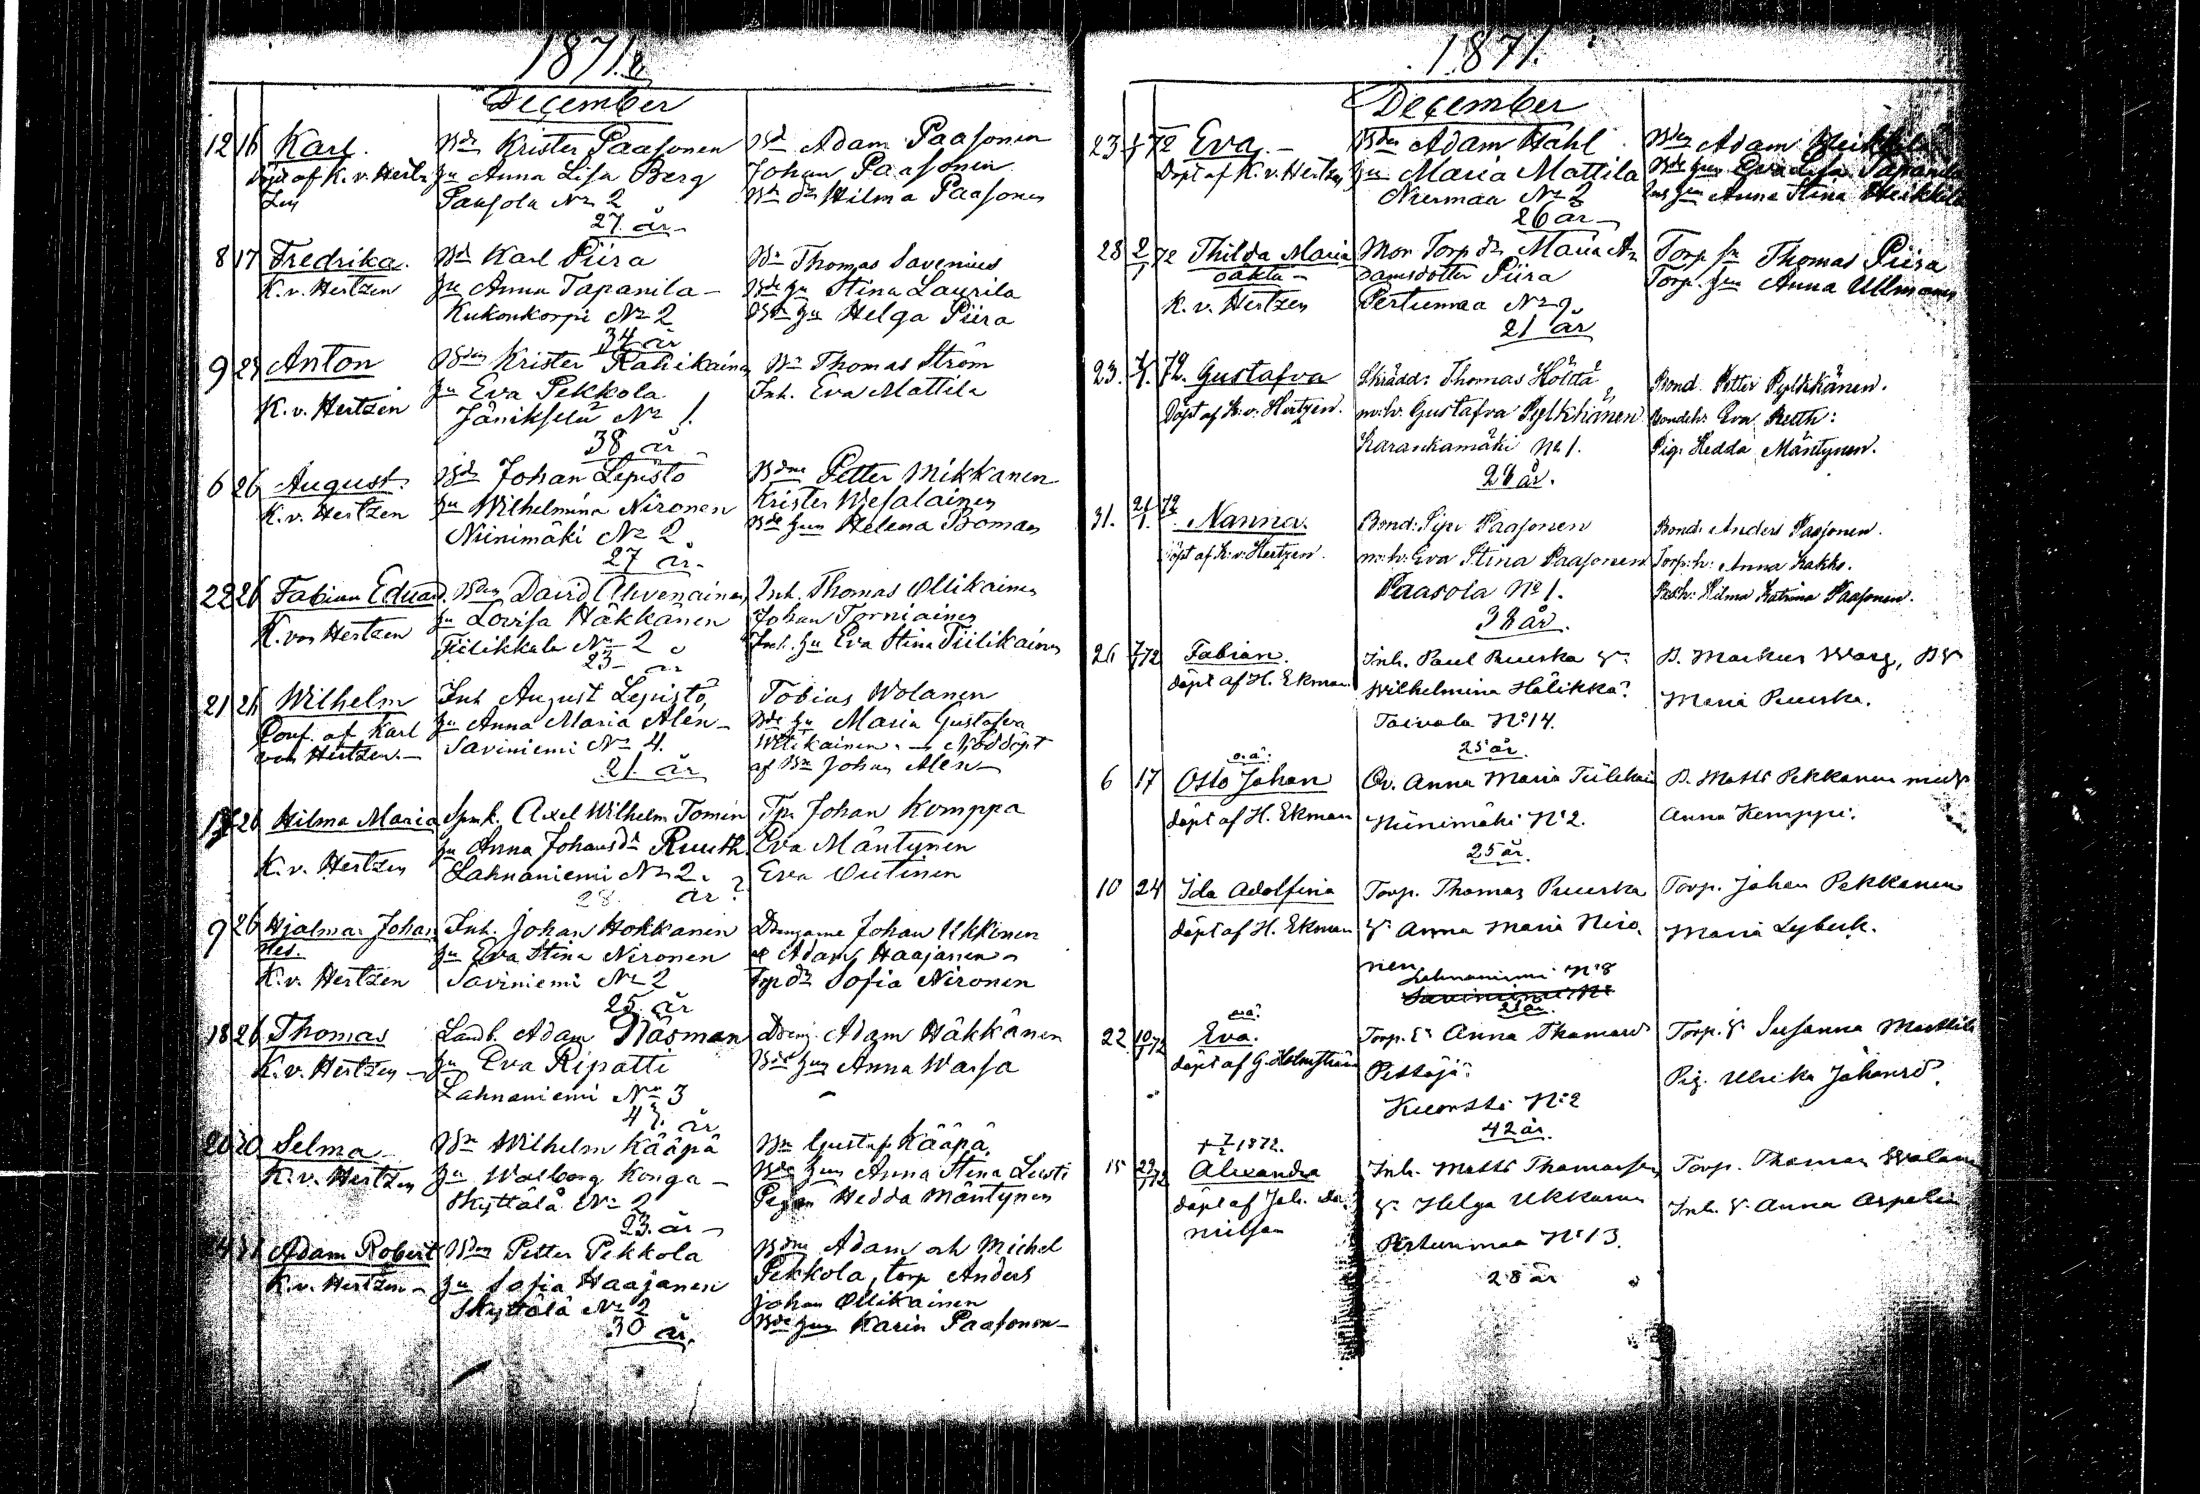 1871.
December
12 16 Karl. Bdn Krister Paasonen Bd Adam Paasonen
döpt af K. v. Hertzen hu Anna Lisa Berg Johan Paasonen
Paasola No 2 Bn dr Hilma Paasonen
27 år
8 17 Fredrika. Bd Karl Piira Bn Thomas Savenius
K. v. Hertzen hu Anna Tapanila Bde hu Stina Laurila
Kukonkorpi No 2 Bde hu Helga Piira
34 år
9 Anton Bden Krister Rahikainen Bn Thomas Ström
K. v. Hertzen hu Eva Pekkola Inh. Eva Mattila
Jänikselä No 1.
38 år
6 26 August. Bdn Johan Lepistö Bdne Petter Mikkanen
K. v. Hertzen hu Wilhelmina Nironen Krister Wesalainen
Niinimäki No 2 Bde hun Helena Boman
27 år
22 26 Fabian Eduard. Bden David Ahvenainen Inh. Thomas Ollikainen
K. von Hertzen hu Lovisa Häkkänen Johan Torniainen
Tiilikkala No 2 Inh. hu Eva Stina Tiilikainen
23 år
21 26 Wilhelm Inh August Lepistö, Tobias Wolanen
Conf. af Karl hu Anna Maria Alén Bde hu Maria Gustafva
von Hertzen. Saviniemi No 4. Nöddöpt
21. år af Bn Johan Alén
26 Hilma Maria Spmk. Axel Wilhelm Tomin Tp. Johan Komppa
hu Anna Johansdr Ruuth Eva Mäntynen
K. v. Hertzen Lahnaniemi No 2. Eva Outinen
28. år?
9 26 Hjalmar Johannes. Inh. Johan Hokkanen Drengarne Johan Ukkonen
hu Eva Stina Nironen Adam Haajanen
K. v. Hertzen Saviniemi No 2 Tp dr Sofia Nironen
25 år
18 26 Thomas Landb. Adam Näsman Dreng Adam Häkkänen
K. v. Hertzen hu Eva Ripatti Bde hun Anna Warsa
Lahnaniemi No 3
år
Selma Bn Wilhelm Kääpä Bn Gustaf Kääpä.
K. v. Hertzen hu Walborg Konga Bde hun Anna Stina Lusti
Skyttälä No 2 Pigan Hedda Mäntynen
23. år
Adam Robert Bden Petter Pekkola Bdne Adam och Michel
K. v. Hertzen hu Sofia Haajanen Pekkola, torp Anders
Skyttälä No 2 Johan Ollikainen
30 år. Bde hun Karin Paasonen
1871.
December
23 72 Eva. Bden Adam Hähl Bden Adam Heikkilä
Döpt af K. v. Hertzen hu Maria Mattila Bde hun Eva Lisa Tapanila
Niermaa No 2 hun Anna Stina Heikkilä
26 år
28 2/1 72 Thilda Maria Mor Torp dr Maria A Torp sn Thomas Piira
oäkta damsdotter Piira Torp. hun Anna Ullmanen
K. v. Hertzen Pertumaa No 9
21 år
23. 72. Gustafva Skrädd: Thomas Höltä Bond. Petter Pylkkänen.
Döpt af K. v. Hertzen. m. h. Gustafva Pylkkänen Bondeh. Eva
Karankamäki No 1. Pig. Hedda Mäntynen.
28 år.
31. 72 Nanna. Bond: Sipi Paasonen Bond. Anders Paasonen.
Döpt af K. v. Hertzen. m. h: Eva Stina Paasonen Torp: h: Anna Kakko.
Paasola No 1. Hilma Katrina Paasonen.
38 år.
26 7/1 72 Fabian. Inh. Paul Ruuska D. Markus Warg,
döpt af H. Ekman Wilhelmina Hölikkä Maria Ruuska.
Toivola No 14.
25 år.
o. ä.
6 17 Otto Johan Qv. Anna Maria D. Matts Pekkanen med
döpt af H. Ekman Niinimäki No 2. Anna Kemppi.
25 år.
10 24 Ida Adolfina Torp. Thomas Ruuska Torp. Johan Pekkanen
döpt af H. Ekman Anna Maria Niro Maria Lybeck.
nen
Lahnaniemi No 8
oä.
22 10/1 72 Eva. Torp. Anna Thomasd Torp. Susanna Marttila
döpt af G. Holmström Pettäjä. Pig. Ulrika Johansd.
Kuortti No 2
42 år.
1872.
15 72 Alexandra Inh. Matts Thomasson Torp. Thomas Wolanen
döpt af Joh. Helga Ukkonen Inh. Anna
Pertunmaa No 13.
28 år